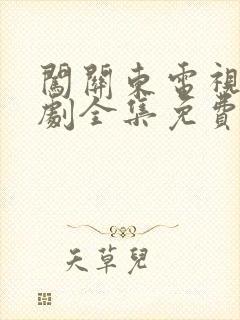 闖關東電視
劇全集免費
天草兒